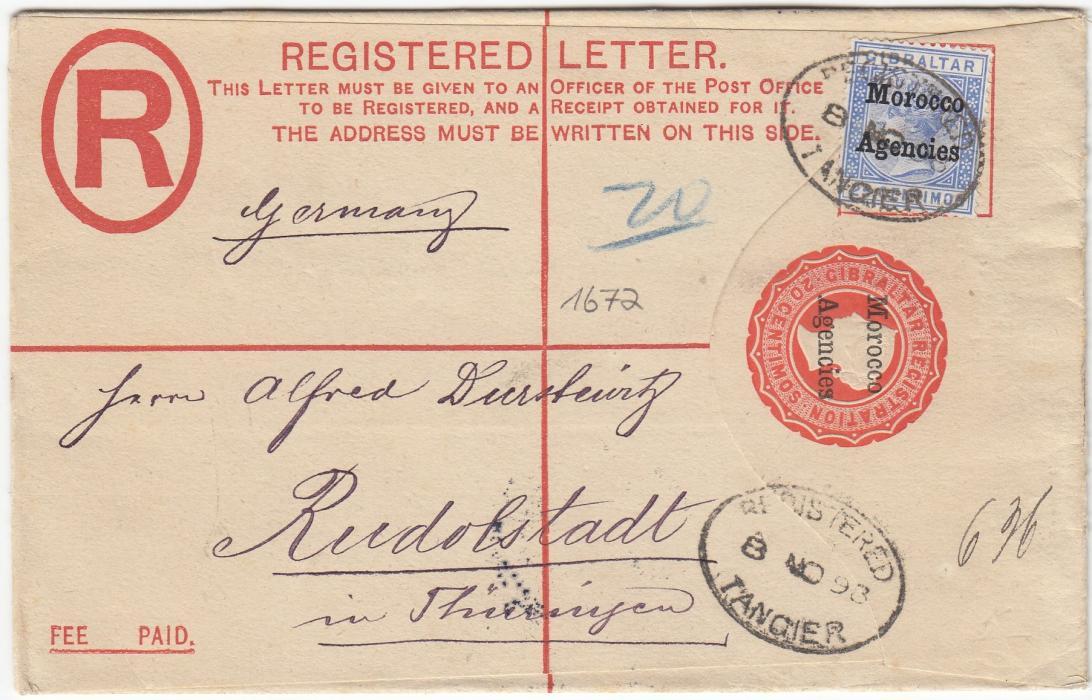 R
REGISTERED LETTER.
THIS LETTER MUST BE GIVEN TO AN OFFICER OF THE POST OFFICE
TO BE REGISTERED, AND A RECEIPT OBTAINED FOR I
THE ADDRESS MUST BE WRITTEN ON THIS SIDE.
GIBRALTAR
Morocco
Agencies
TANGIER
Germany
20
1672
GIBRALTAR REGISTRATION 20 CENTIMOS
Morocco
Agencies
Herrn Alfred
Rudolstadt
in Thüringen
REGISTERED
8 NO 98
TANGIER
636
FEE PAID.